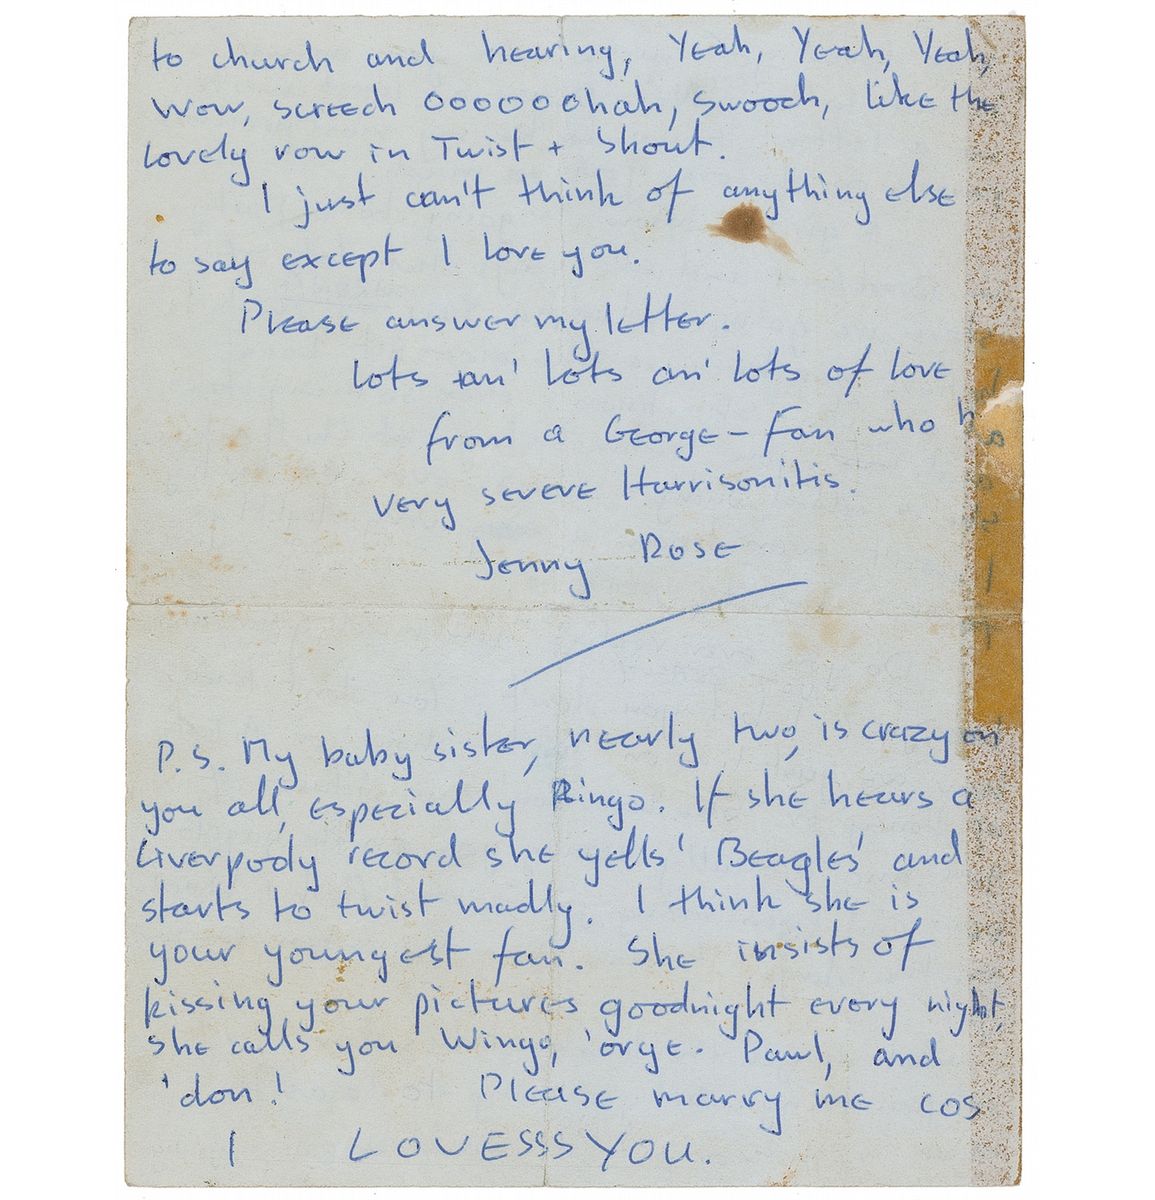 to church and hearing, Yeah, Yeah, Yeah,
wow, screech oooooohah, swooch, like the
lovely row in Twist + Shout.
I just can't think of anything else
to say except I love you.
Please answer my letter.
lots an' lots an' lots of love
from a George-Fan who h
very severe Harrisonitis.
Jenny Rose
P.S. My baby sister, nearly two, is crazy on
you all, especially Ringo. If she hears a
Liverpooly record she yells 'Beagles' and
starts to twist madly. I think she is
your youngest fan. She insists of
kissing your pictures goodnight every night,
she calls you 'Wingo, 'orge. Paul, and
'don! Please marry me cos
I LOVESSS YOU.